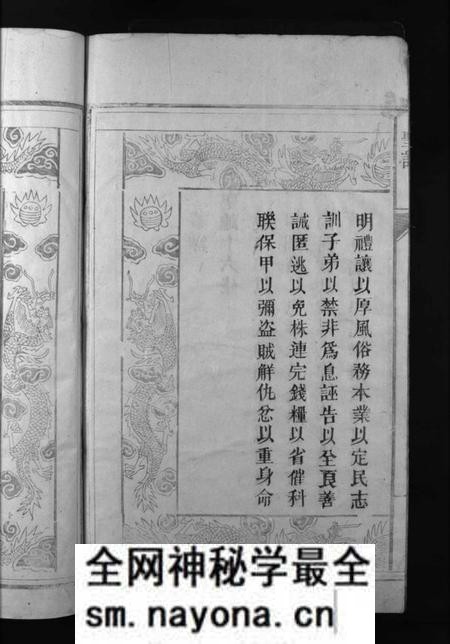 聖諭
明禮讓以厚風俗務本業以定民志
訓子弟以禁非爲息誣告以全良善
誡匿逃以免株連完錢糧以省催科
聯保甲以彌盜賊觧仇忿以重身命
全网神秘学最全
sm.nayona.cn